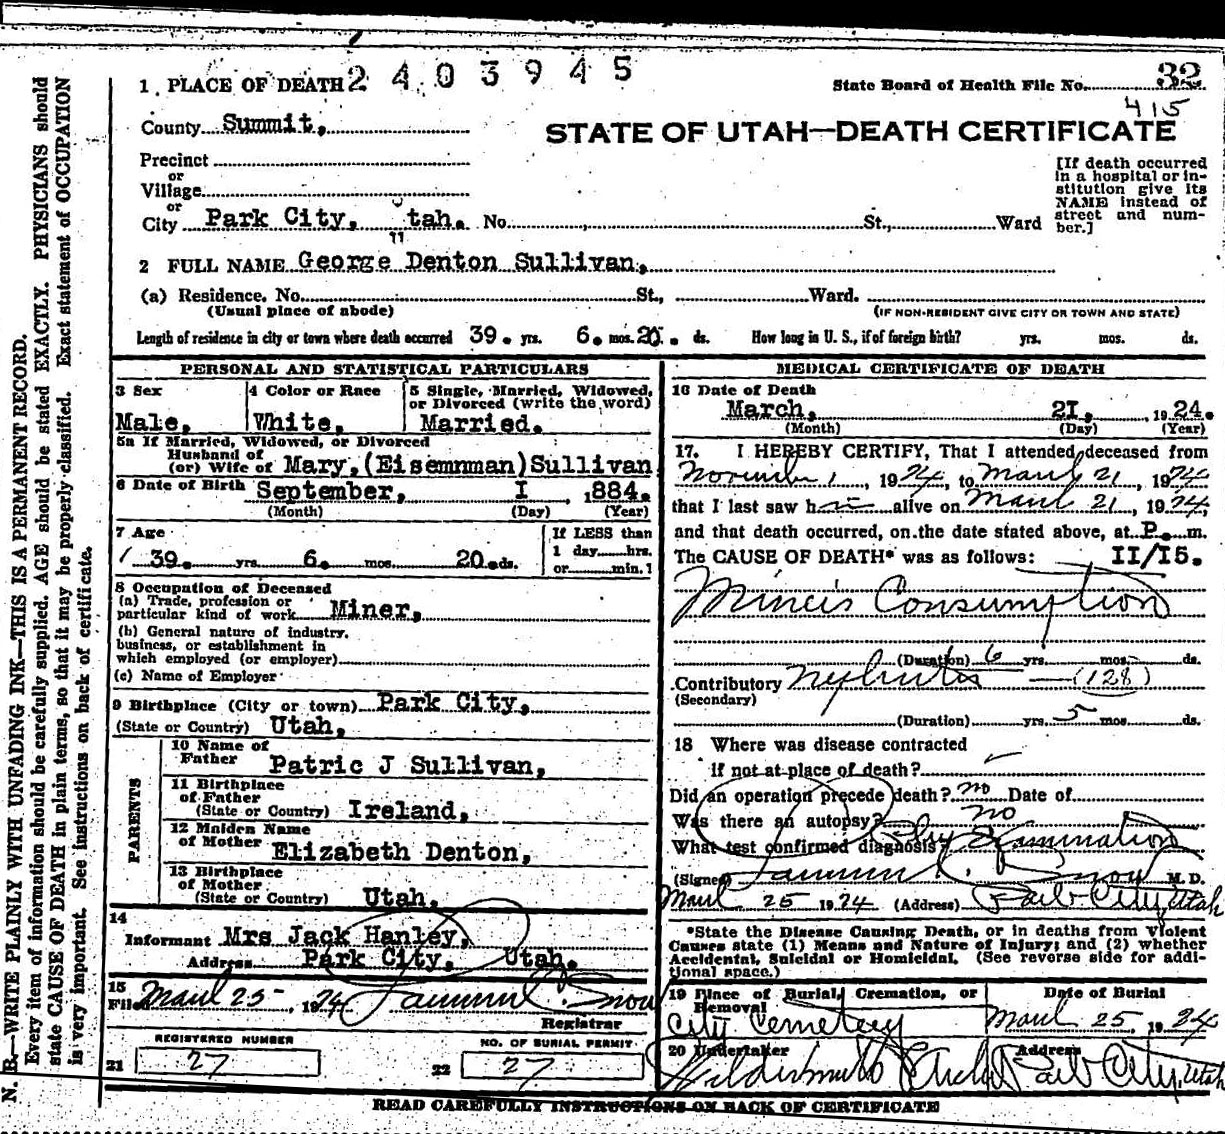 2403945
1 PLACE OF DEATH
State Board of Health File No. 32
415
County Summit,
STATE OF UTAH—DEATH CERTIFICATE
Precinct
or
Village
or
City Park City, Utah. No. St., Ward
[If death occurred
in a hospital or in-
stitution give its
NAME instead of
street and num-
ber.]
2 FULL NAME George Denton Sullivan,
(a) Residence. No. St., Ward.
(Usual place of abode)
(IF NON-RESIDENT GIVE CITY OR TOWN AND STATE)
Length of residence in city or town where death occurred 39. yrs. 6. mos. 20. ds. How long in U. S., if of foreign birth? yrs. mos. ds.
PERSONAL AND STATISTICAL PARTICULARS
3 Sex
Male,
4 Color or Race
White,
5 Single, Married, Widowed,
or Divorced (write the word)
Married.
5a If Married, Widowed, or Divorced
Husband of
(or) Wife of Mary, (Eisemnman) Sullivan
6 Date of Birth September, I, 1884.
(Month) (Day) (Year)
7 Age
39. yrs. 6. mos. 20. ds.
If LESS than
1 day hrs.
or min. ?
8 Occupation of Deceased
(a) Trade, profession or
particular kind of work Miner,
(b) General nature of industry,
business, or establishment in
which employed (or employer)
(c) Name of Employer
9 Birthplace (City or town) Park City,
(State or Country) Utah,
PARENTS
10 Name of
Father Patric J Sullivan,
11 Birthplace
of Father
(State or Country) Ireland,
12 Maiden Name
of Mother Elizabeth Denton,
13 Birthplace
of Mother
(State or Country) Utah.
14
Informant Mrs Jack Hanley,
Address Park City, Utah.
15
Filed March 25, 1924 Snow
Registrar
REGISTERED NUMBER
21 27
NO. OF BURIAL PERMIT
22 27
MEDICAL CERTIFICATE OF DEATH
16 Date of Death
March, 2I, 1924.
(Month) (Day) (Year)
17. I HEREBY CERTIFY, That I attended deceased from
November 1, 1924, to March 21, 1924
that I last saw him alive on March 21, 1924,
and that death occurred, on the date stated above, at P. m.
The CAUSE OF DEATH* was as follows: II/I5.
Miner's Consumption
(Duration) 6 yrs. mos. ds.
Contributory Nephritis — (128)
(Secondary)
(Duration) yrs. 5 mos. ds.
18 Where was disease contracted
if not at place of death?
Did an operation precede death? no Date of
Was there an autopsy? no
What test confirmed diagnosis? Phy Examination
(Signed) Snow M. D.
March 25 1924 (Address) Park City, Utah
*State the Disease Causing Death, or in deaths from Violent
Causes state (1) Means and Nature of Injury; and (2) whether
Accidental, Suicidal or Homicidal. (See reverse side for addi-
tional space.)
19 Place of Burial, Cremation, or
Removal
City Cemetery
Date of Burial
March 25, 1924
20 Undertaker
Address
Park City, Utah
READ CAREFULLY INSTRUCTIONS ON BACK OF CERTIFICATE
N. B.—WRITE PLAINLY WITH UNFADING INK—THIS IS A PERMANENT RECORD.
Every item of information should be carefully supplied. AGE should be stated EXACTLY. PHYSICIANS should
state CAUSE OF DEATH in plain terms, so that it may be properly classified. Exact statement of OCCUPATION
is very important. See instructions on back of certificate.